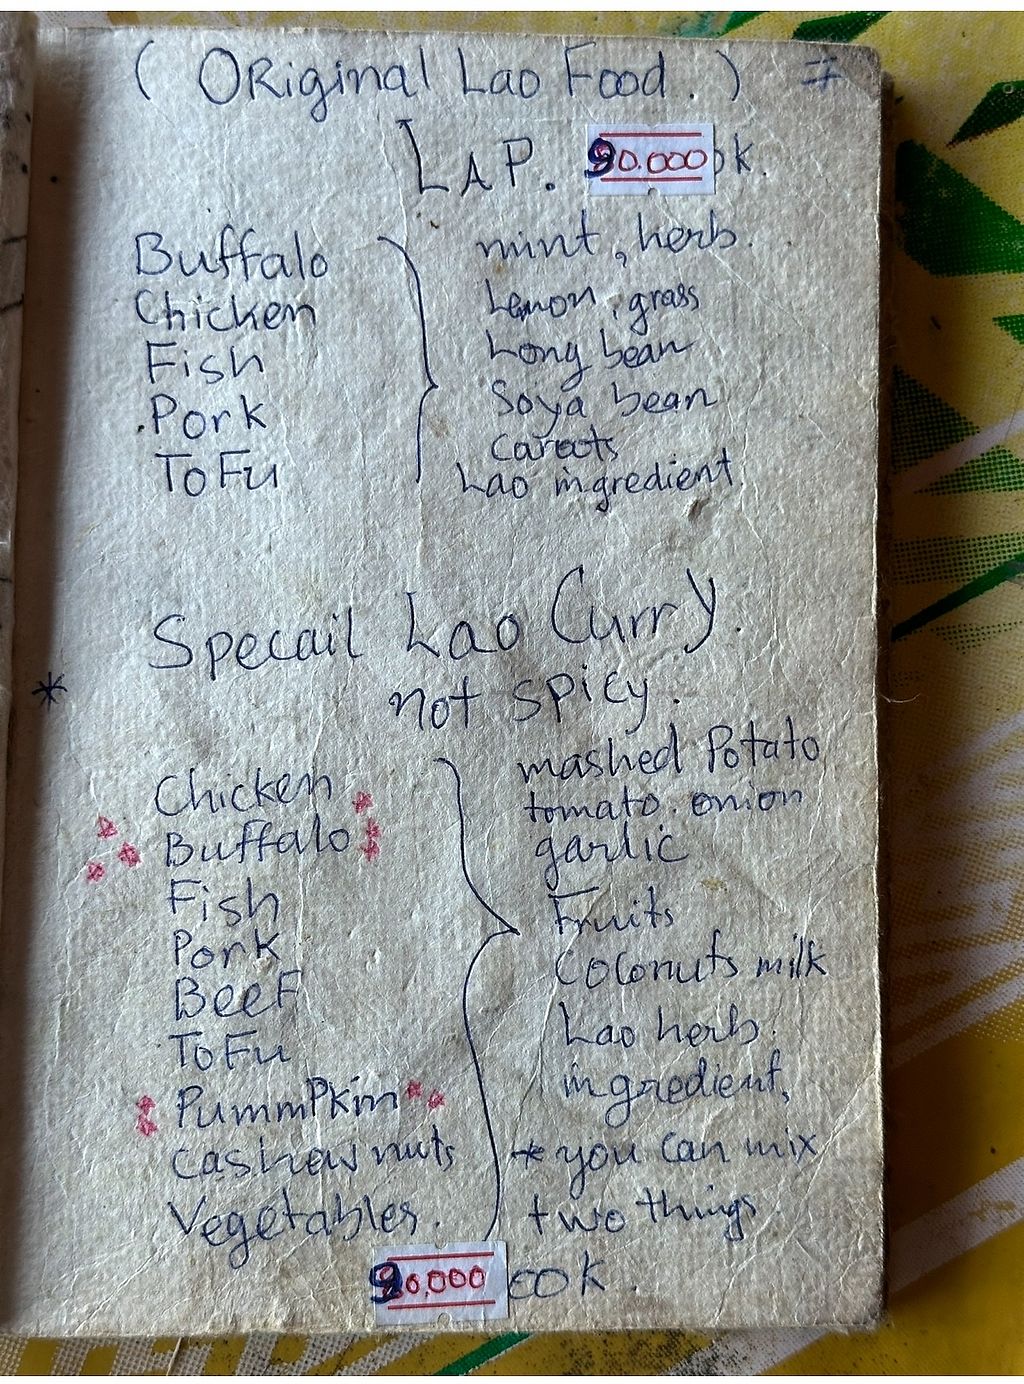 ( ORiginal Lao Food. ) #
LAP. 90.000 k.
Buffalo
Chicken
Fish
Pork
ToFu
mint, herb.
Lemon, grass
Long bean
Soya bean
carots
Lao ingredient
Specail Lao Curry.
* not spicy.
Chicken
Buffalo
Fish
Pork
BeeF
ToFu
PummPkin
cashew nuts
Vegetables.
mashed Potato
tomato. onion
garlic
Fruits
Coconuts milk
Lao herb.
ingredient,
* you can mix
two things
90,000 k.